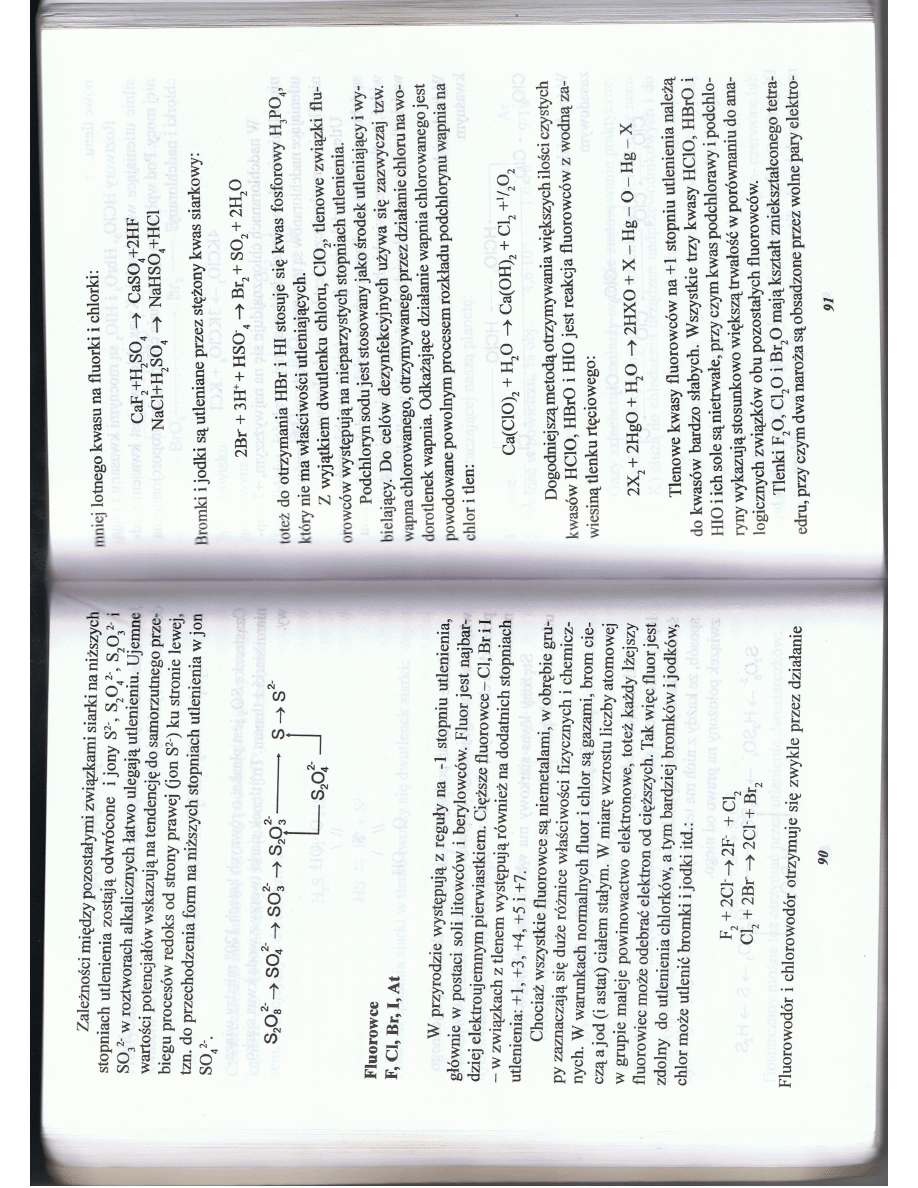 Zależności między pozostałymi związkami siarki na niższych
stopniach utlenienia zostają odwrócone i jony S²⁻, S₂O₄²⁻, S₂O₃²⁻ i
SO₃²⁻ w roztworach alkalicznych łatwo ulegają utlenieniu. Ujemne
wartości potencjałów wskazują na tendencję do samorzutnego prze-
biegu procesów redoks od strony prawej (jon S²⁻) ku stronie lewej,
tzn. do przechodzenia form na niższych stopniach utlenienia w jon
SO₄²⁻.
S₂O₈²⁻ → SO₄²⁻ → SO₃²⁻ → S₂O₃²⁻ → S → S²⁻
S₂O₄²⁻
Fluorowce
F, Cl, Br, I, At
W przyrodzie występują z reguły na -1 stopniu utlenienia,
głównie w postaci soli litowców i berylowców. Fluor jest najbar-
dziej elektroujemnym pierwiastkiem. Cięższe fluorowce – Cl, Br i I
– w związkach z tlenem występują również na dodatnich stopniach
utlenienia: +1, +3, +4, +5 i +7.
Chociaż wszystkie fluorowce są niemetalami, w obrębie gru-
py zaznaczają się duże różnice właściwości fizycznych i chemicz-
nych. W warunkach normalnych fluor i chlor są gazami, brom cie-
czą a jod (i astat) ciałem stałym. W miarę wzrostu liczby atomowej
w grupie maleje powinowactwo elektronowe, toteż każdy lżejszy
fluorowiec może odebrać elektron od cięższych. Tak więc fluor jest
zdolny do utlenienia chlorków, a tym bardziej bromków i jodków,
chlor może utlenić bromki i jodki itd.:
F₂ + 2Cl⁻ → 2F⁻ + Cl₂
Cl₂ + 2Br⁻ → 2Cl⁻ + Br₂
Fluorowodór i chlorowodór otrzymuje się zwykle przez działanie
90
mniej lotnego kwasu na fluorki i chlorki:
CaF₂+H₂SO₄ → CaSO₄+2HF
NaCl+H₂SO₄ → NaHSO₄+HCl
Bromki i jodki są utleniane przez stężony kwas siarkowy:
2Br⁻ + 3H⁺ + HSO₄⁻ → Br₂ + SO₂ + 2H₂O
toteż do otrzymania HBr i HI stosuje się kwas fosforowy H₃PO₄,
który nie ma właściwości utleniających.
Z wyjątkiem dwutlenku chloru, ClO₂, tlenowe związki flu-
orowców występują na nieparzystych stopniach utlenienia.
Podchloryn sodu jest stosowany jako środek utleniający i wy-
bielający. Do celów dezynfekcyjnych używa się zazwyczaj tzw.
wapna chlorowanego, otrzymywanego przez działanie chloru na wo-
dorotlenek wapnia. Odkażające działanie wapnia chlorowanego jest
powodowane powolnym procesem rozkładu podchlorynu wapnia na
chlor i tlen:
Ca(ClO)₂ + H₂O → Ca(OH)₂ + Cl₂ +¹/₂O₂
Dogodniejszą metodą otrzymywania większych ilości czystych
kwasów HClO, HBrO i HIO jest reakcja fluorowców z wodną za-
wiesiną tlenku rtęciowego:
2X₂ + 2HgO + H₂O → 2HXO + X – Hg – O – Hg – X
Tlenowe kwasy fluorowców na +1 stopniu utlenienia należą
do kwasów bardzo słabych. Wszystkie trzy kwasy HClO, HBrO i
HIO i ich sole są nietrwałe, przy czym kwas podchlorawy i podchlo-
ryny wykazują stosunkowo większą trwałość w porównaniu do ana-
logicznych związków obu pozostałych fluorowców.
Tlenki F₂O, Cl₂O i Br₂O mają kształt zniekształconego tetra-
edru, przy czym dwa naroża są obsadzone przez wolne pary elektro-
91